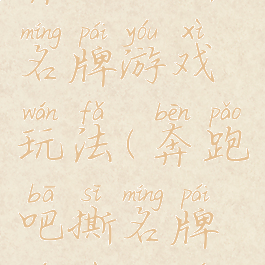 míng pái yóu xì
名牌游戏
wán fǎ bēn pǎo
玩法(奔跑
bā sī míng pái
吧撕名牌